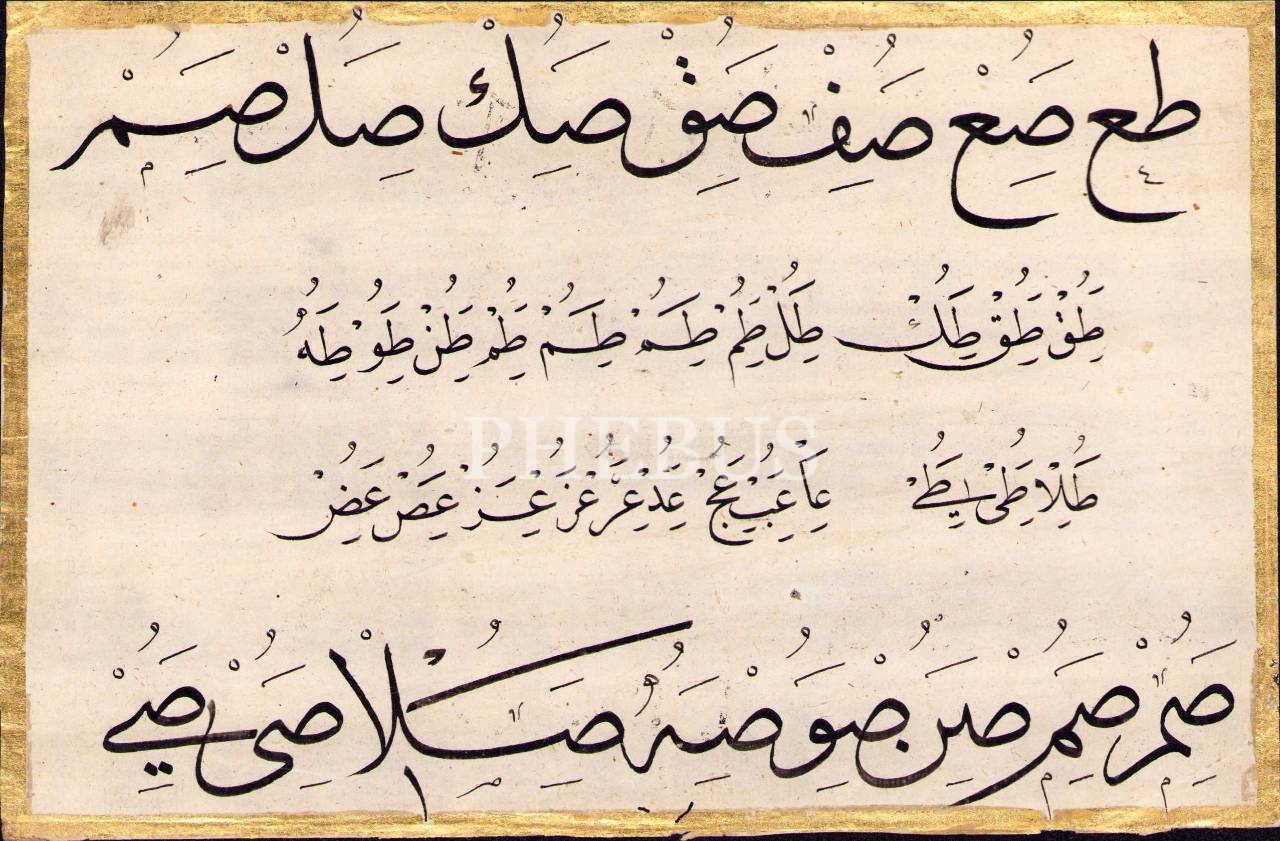 طع صع صف صق صك صل صم
طق طق طك طل طم طم طم طم طن طو طه
طلا طى طى عا عب عج عد عر عز عز عص عض
PHEBUS
صم صم صن صو صه صلا صى صى